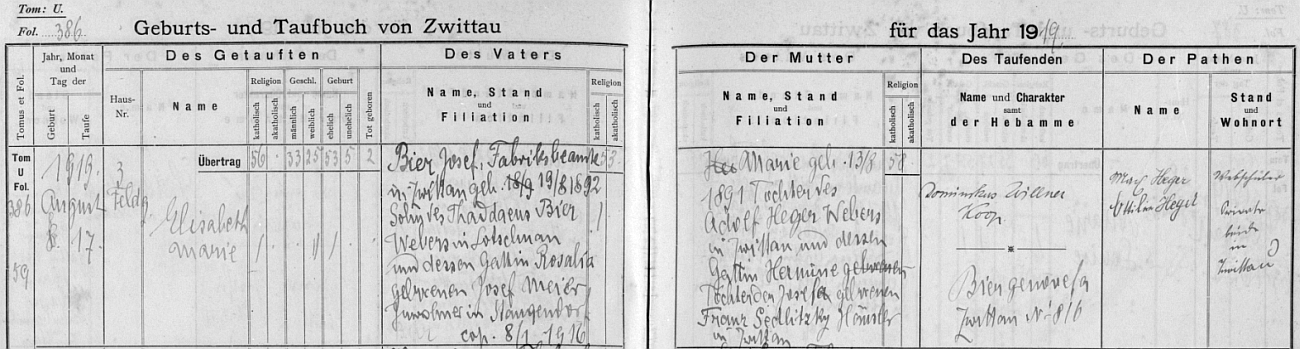 Tom: U.
Fol. 386
Geburts- und Taufbuch von Zwittau
für das Jahr 1919.
Tomus et Fol.
Jahr, Monat
und
Tag der
Geburt
Taufe
Haus-
Nr.
Des Getauften
Name
Religion
katholisch
akatholisch
Geschl.
männlich
weiblich
Geburt
ehelich
unehelich
Tot geboren
Des Vaters
Name, Stand
und
Filiation
Religion
katholisch
akatholisch
Der Mutter
Name, Stand
und
Filiation
Religion
katholisch
akatholisch
Des Taufenden
Name und Charakter
samt
der Hebamme
Der Pathen
Name
Stand
und
Wohnort
Tom
U
Fol.
386
59
1919.
August
8. 17
3
Feldg
Übertrag 56 . 33 25 53 5 2
Elisabeth
Marie
Bier Josef, Fabriksbeamte 53
in Zwittau geb. 19/8 1892
Sohn des Thaddaeus Bier
Webers in Lotschnau
und dessen Gattin Rosalia
geborenen Josef Meier
Inwohner in Stangendorf
cop. 8/1 1916
Marie geb. 13/8 58
1891 Tochter des
Adolf Heger Webers
in Zwittau und dessen
Gattin Hermine
Tochter der Josefa geborenen
Franz Sedlitzky Häusler
in Zwittau
Dominikus Willner
Koop.
Bier Genovefa
Zwittau No 816
Marg Heger
Ottilie Heger
Webschüler
Private
beide
in
Zwittau